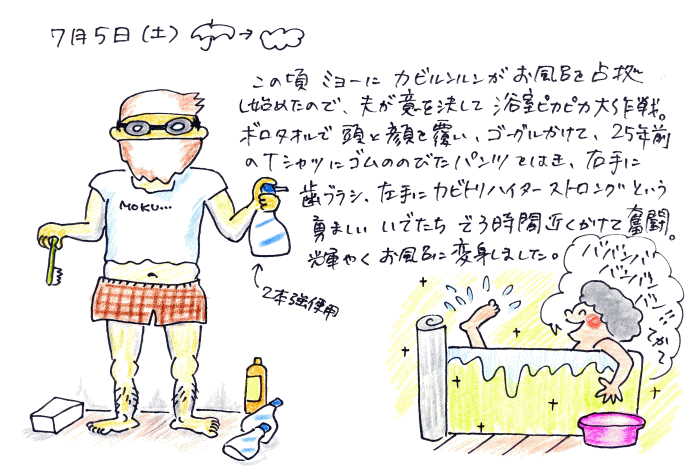 7月5日(土) →
この頃 ミョーに カビルンルンが お風呂を占拠
し始めたので、夫が意を決して 浴室ピカピカ大作戦。
ボロタオルで 頭と顔を覆い、ゴーグルかけて、25年前
のTシャツにゴムののびたパンツをはき、右手に
歯ブラシ、左手にカビトリハイターストロングという
勇ましい いでたち で3時間近くかけて奮闘。
輝やく お風呂に変身しました。
MOKU...
2本強使用
ババンバ
バンバン
バン!!
てか?